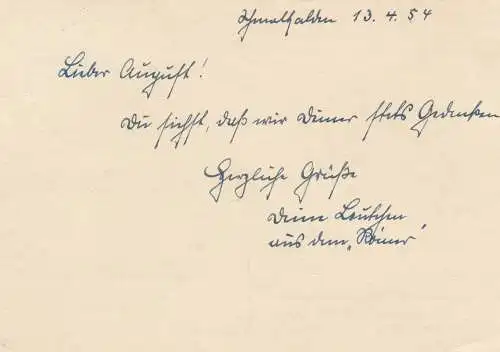 Schmalkalden 13.4.54
Lieber August!
Du siehst, daß wir Deiner stets Gedenken
Herzliche Grüße
Deine Leutchen
aus dem „Römer“